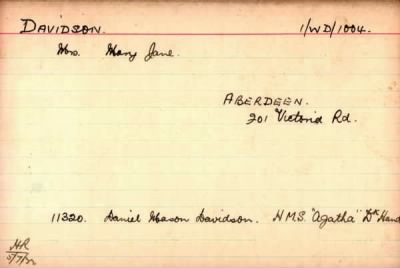 DAVIDSON. 1/WD/1004.
Mrs. Mary Jane.
ABERDEEN.
201 Victoria Rd.
11320. Daniel Mason Davidson. H.M.S. "Agatha" Dk Hand
HR